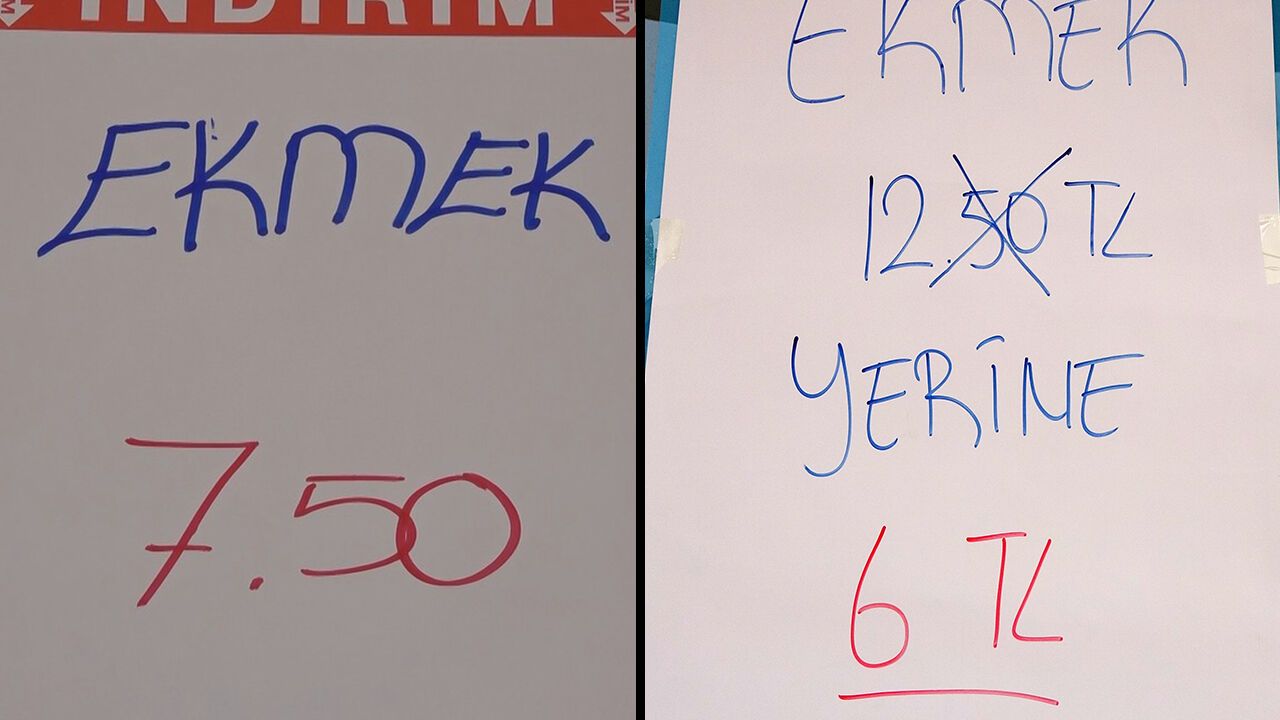 İNDİRİM
EKMEK
7.50
EKMEK
12.50 TL
YERİNE
6 TL